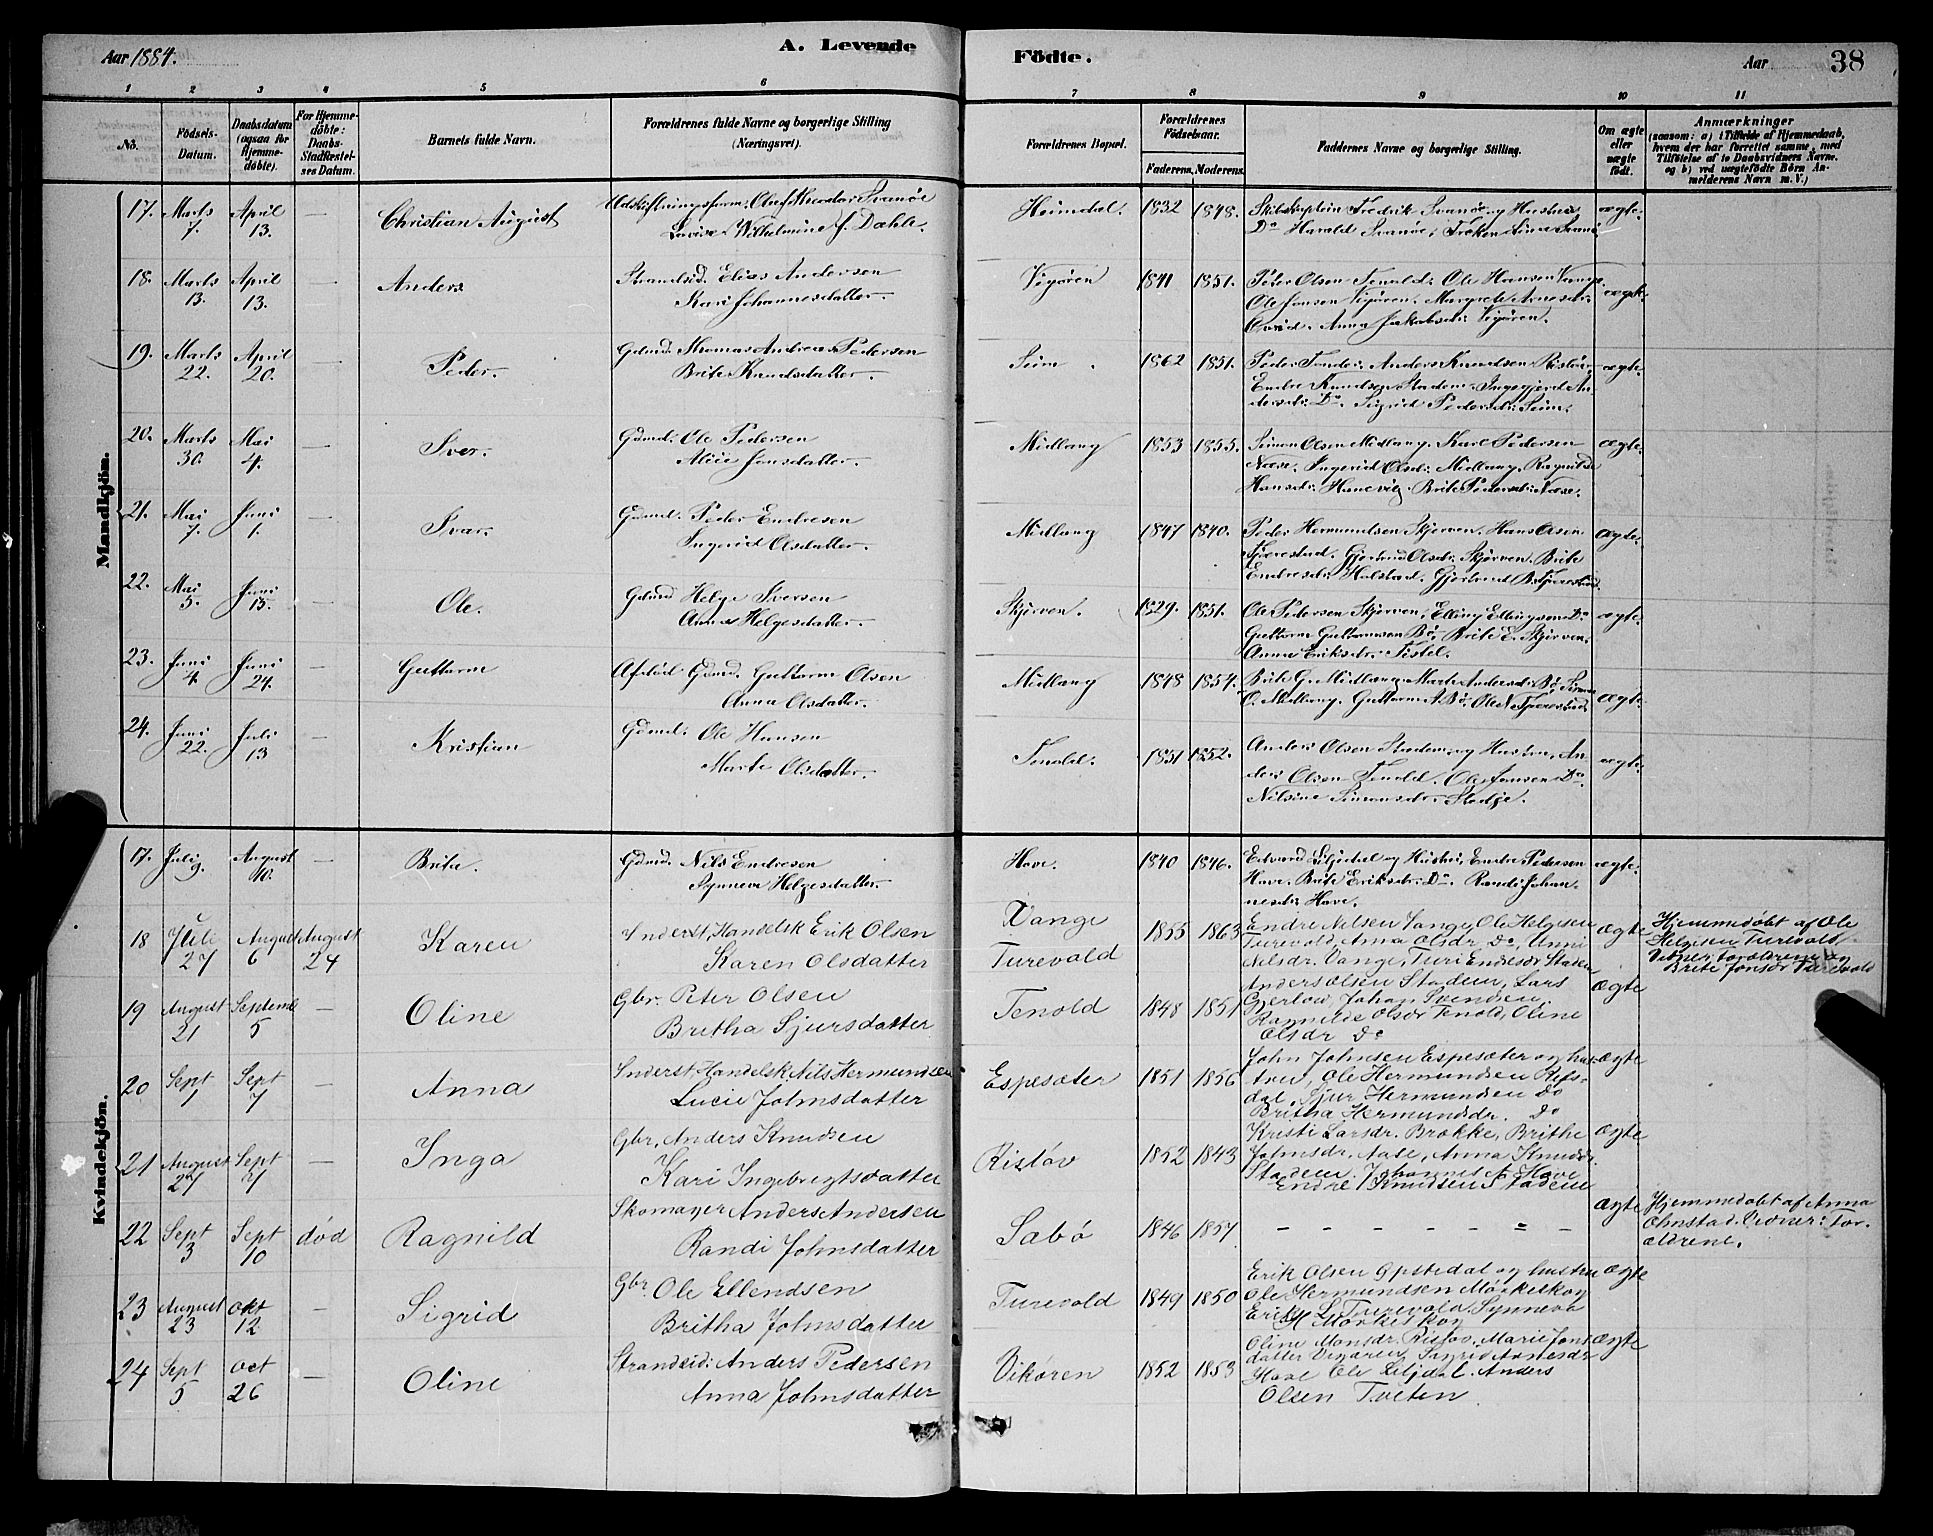 Aar 1884.
A. Levende
Födte.
Aar
38
1 2 3 4 5 6 7 8 9 10 11
No.
Födsels-Datum.
Daabsdatum (ogsaa for Hjemmedöbte).
For Hjemmedöbte: Daabs-Stadfæstelses Datum.
Barnets fulde Navn.
Forældrenes fulde Navne og borgerlige Stilling (Næringsvei).
Forældrenes Bopæl.
Forældrenes Födselsaar.
Faderens. Moderens.
Faddernes Navne og borgerlige Stilling.
Om ægte eller uægte födt.
Anmærkninger
(saasom: a) i Tilfælde af Hjemmedaab, hvem der har forrettet samme, med Tilföielse af to Daabsvidners Navne, og b) ved uægtefödte Börn Anmelderens Navn m. V.)
Mandkjön.
17. Marts 7. April 13. — Christian August
Lovise Wilhelmine f. Dahl.
Heimdal. 1832 1848.
Skibskaptein Fredrik Svanøe og Hustru,
Do Harald Svanøe, Frøken Anna Svanøe
ægte.
18. Marts 13. April 13. — Anders
Strandsid. Elias Andersen
Kari Johannesdatter.
Vigøren 1841 1851.
Peder Olsen Tenold. Ole Hansen Vange.
Ole Jonsen Vigøren. Margrete Arnesdr.
Anna Jakobsdr. Vigøren.
ægte.
19. Marts 22. April 20. — Peder.
Gdmd. Thomas Andreas Pedersen
Brite Knudsdatter.
Seim. 1862 1851.
Anders Knudsen Ristøv,
Endre Knudsen Stadem. Ingegjerd Andersdr. Do. Sigrid Pedersdr. Seim.
ægte.
20. Marts 30. Mai 4. — Iver.
Gdmd. Ole Pedersen
Alice Jonsdatter.
Midlang 1853 1855.
Simon Olsen Midlang. Karl Pedersen
Næse. Ingerid Olsdr. Midlang. Ragnilde
Hansdr. Brite Pedersdr. Næse.
ægte.
21. Mai 7. Juni 1. — Ivar.
Gdmd. Peder Endresen
Ingerid Olsdatter.
Midlang 1847 1840.
Peder Hermundsen Skjørven. Hans Olsen
Fjærestad. Gjertrud Olsdr. Skjørven. Brite
Endresdr. Holstad.
ægte.
22. Mai 5. Juni 15. — Ole.
Gdmd Helge Iversen
Anna Helgesdatter.
Skjørven. 1829. 1851.
Ole Pedersen Skjørven, Elling Ellingsen Do
Guttorm Guttormsen Bø, Brite E. Skjørven,
Anna Eriksdr. Tistel.
ægte.
23. Juni 4. Juni 24. — Guttorm
Afdöd Gdmd. Guttorm Olsen
Anna Olsdatter.
Midlang 1848 1854.
Brite G. Midlang. Marte Andersdr. Bø, Simon
O. Midlang. Guttorm A. Bø, Ole N. Fjærestad.
ægte.
24. Juni 22. Juli 13 — Kristian
Gdmd. Ole Hansen
Marte Olsdatter.
Tenold. 1851 1852.
Anders Olsen Stadem og Hustru, Anders Olsen Tenold. Ole Jonsen Do.
Nilsine Simonsdr. Stedje.
ægte.
Kvindekjön.
17. Juli 9. August 10. — Brite.
Gdmd. Nils Endresen
Synneva Helgesdatter.
Hove. 1840 1846.
Edvard Liljedal og Hustru, Endre Pedersen
Hove. Brite Eriksdr. Do. Randi Johannesdr. Hove.
ægte.
18 Juli 27 August 6 August 24 Karen
Inderst, Handelsk. Erik Olsen
Karen Olsdatter
Vange
Turevold 1855 1863
Endre Nilsen Vange, Ole Helgesen
Turevold, Anna Olsdr. Do, Unni
Nilsdr. Vange, Turi Endresdr Stadem
ægte
Hjemmedøbt af Ole
Helgesen Turevold.
Vidner: Forældrene og
Brite Jonsdr Turevold
19 August 21 Septembr 5 — Oline
Gbr. Peter Olsen
Britha Sjursdatter
Tenold 1848 1851
Anders Olsen Stadem, Lars
Gjerløw, Johan Svendsen,
Ragnilde Olsdr Tenold, Oline
Olsdr Do
ægte
20 Sept 1 Sept 7 — Anna
Inderst, Handelsk. Nils Hermundsen
Lucie Johnsdatter
Espesæter 1851 1856
John Johnsen Espesæter og hustru, Ole Hermundsen Refsdal, Sjur Hermundsen Do
Britha Hermundsdr. Do
ægte
21 August 27 Sept 7 — Inga
Gbr. Anders Knudsen
Kari Ingebregtsdatter
Ristøv 1852 1843
Kristi Larsdr. Brække, Brithe
Johnsdr. Aase, Anna Knudsdr.
Stadem, Johannes A. Hove
Endre Knudsen Stadem
ægte
22 Sept 3 Sept 10 død Ragnild
Skomager Anders Andersen
Randi Johnsdatter
Sabø 1846 1857
– – – – – – –
ægte
Hjemmedøbt af Anna
Ohnstad. Vidner: Forældrene.
23 August 23 Okt 12 — Sigrid
Gbr. Ole Ellendsen
Britha Johnsdatter
Turevold 1849 1850
Erik Olsen Opstedal og hustru
Ole Hermundsen Mørkeskog
Erik L. Turevold, Synneva
H Mørkeskog
ægte
24 Sept 5 Oct 26 — Oline
Strandsid: Anders Pedersen
Anna Johnsdatter
Vikøren 1852 1853
Oline Monsdr. Ristøv, Marie Jonsdatter Vigøren, Sigrid Arnesdr
Hove Ole Liljdal. Anders
Olsen Tveten
ægte